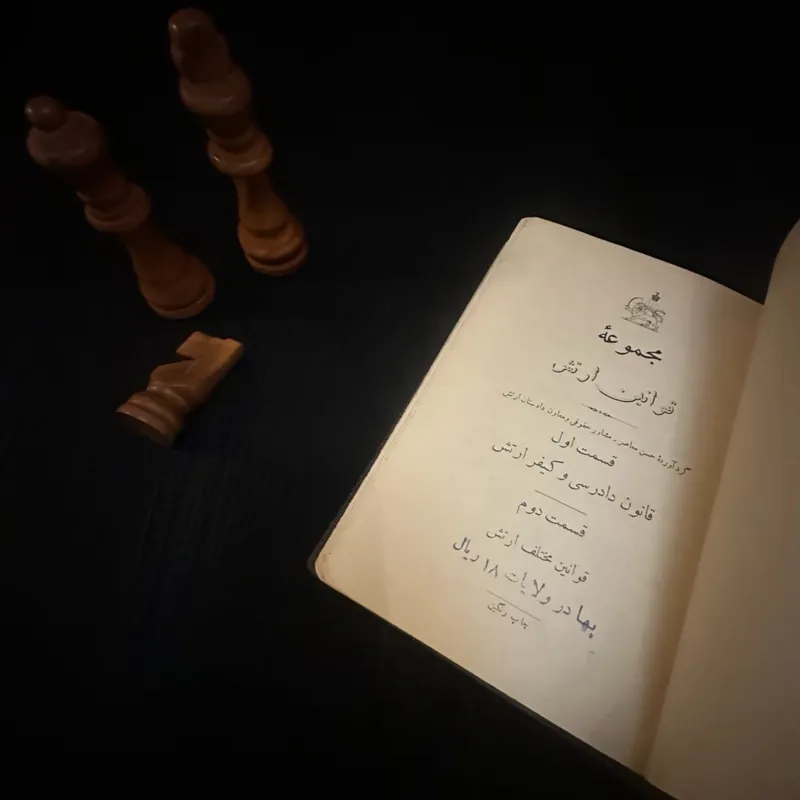 مجموعهٔ
قوانین ارتش
گردآوردهٔ حسن معاصر - مشاور حقوقی و معاون دادستان ارتش
قسمت اول
قانون دادرسی و کیفر ارتش
قسمت دوم
قوانین مختلف ارتش
بها در ولایات ۱۸ ریال
چاپ رنگین